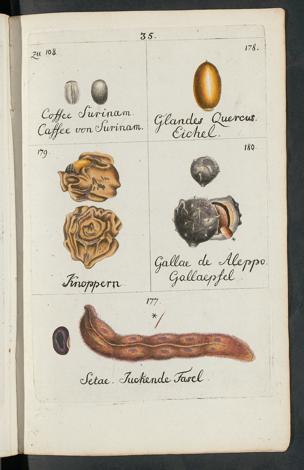 35.
zu 108.
Coffee Surinam.
Caffee von Surinam.
178.
Glandes Quercus.
Eichel.
179.
Knoppern
180.
Gallae de Aleppo.
Gallaepfel.
177.
*
Setae. Juckende Fasel.